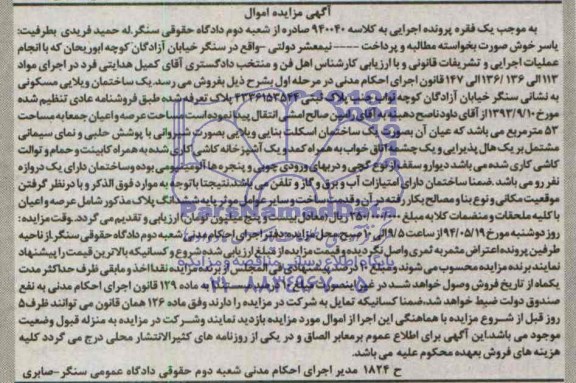 آگهی مزایده اموال
به موجب یک فقره پرونده اجرایی به کلاسه ۹۴۰۰۴۰ صادره از شعبه دوم دادگاه حقوقی سنگر.له حمید فریدی بطرفیت:
یاسر خوش صورت بخواسته مطالبه و پرداخت ---- نیمعشر دولتی -واقع در سنگر خیابان آزادگان کوچه ابوریحان که با انجام
عملیات اجرایی و تشریفات قانونی و با ارزیابی کارشناس اهل فن و منتخب دادگستری آقای کمیل هدایتی فرد در اجرای مواد
۱۱۳ الی ۱۳۶ /۱۳۶ الی ۱۴۷ قانون اجرای احکام مدنی در مرحله اول بشرح ذیل بفروش می رسد.یک ساختمان ویلایی مسکونی
به نشانی سنگر خیابان آزادگان کوچه پلاک قبتی پلاک تعرفه شده طبق فروشنامه عادی تنظیم شده
مورخ ۱۳۹۳/۹/۱۰ از آقای داود ناصح دهسه به آقای رامین صالح امشی انتقال پیدا نموده است.مساحت عرصه و اعیان جمعا به مساحت
۵۳ مترمربع می باشد که عیان آن بصورت یک ساختمان اسکلت بنایی ویلایی بصورت شیروانی با پوشش حلبی و نمای سیمانی
مشتمل بر یک هال پذیرایی و یک چشمه اتاق خواب به همراه کمد و یک آشپزخانه کاشی کاری شده به همراه کابینت و حمام و توالت
کاشی کاری شده می باشد دیوار و سقف از نوع گچی و دربهای ورودی چوبی و پنجره ها آلومینیومی بوده و ساختمان دارای یک دروازه
نفر رو می باشد.ضمنا ساختمان دارای امتیازات آب و برق و گاز و تلفن می باشد.نتیجتا باتوجه به موارد فوق الذکر و با در نظر گرفتن
موقعیت مکانی و نوع بنا و مصالح بکار رفته در آن و قدمت ساخت و سایر عوامل موثر پایه ششدانگ پلاک مذکور شامل عرصه و اعیان
با کلیه ملحقات و منضمات کلا به مبلغ معادل بیست و پنج میلیون تومان ارزیابی و تقدیم می گردد.وقت مزایده:
روز دوشنبه مورخ ۹۴/۰۵/۱۹ از ساعت ۸/۵ الی صبح محل مزایده:دفتر اجرای احکام مدنی شعبه دوم دادگاه حقوقی سنگر.از ناحیه
طرفین پرونده اعتراض مثمربه ثمری واصل نگردیده و قیمت مزایده از مبلغ ارزیابی شده شروع و کسانیکه بالاترین قیمت را پیشنهاد
نمایند برنده مزایده محسوب می شوند و مبلغ ۱۰ درصد پیشنهادی فی المجلس از برنده مزایده نقدا اخذ و مابقی ظرف حداکثر مدت
یکماه از تاریخ فروش وصول خواهد شد در غیر اینصورت به ماده ۱۲۹ قانون اجرای احکام مدنی به نفع
صندوق دولت ضبط خواهد شد.ضمنا کسانیکه تمایل به شرکت در مزایده را دارند وفق ماده ۱۲۶ همان قانون می توانند ظرف ۵
روز قبل از شروع مزایده با هماهنگی این اجرا از اموال مورد مزایده بازدید نمایند وشرکت در مزایده به منزله قبول وضعیت
موجود می باشد.این آگهی برای اطلاع عموم برمعابر الصاق و در یکی از روزنامه های کثیرالانتشار محلی درج می گردد کلیه
هزینه های فروش بعهده محکوم علیه می باشد.
ح ۱۸۲۴ مدیر اجرای احکام مدنی شعبه دوم حقوقی دادگاه عمومی سنگر-صابری